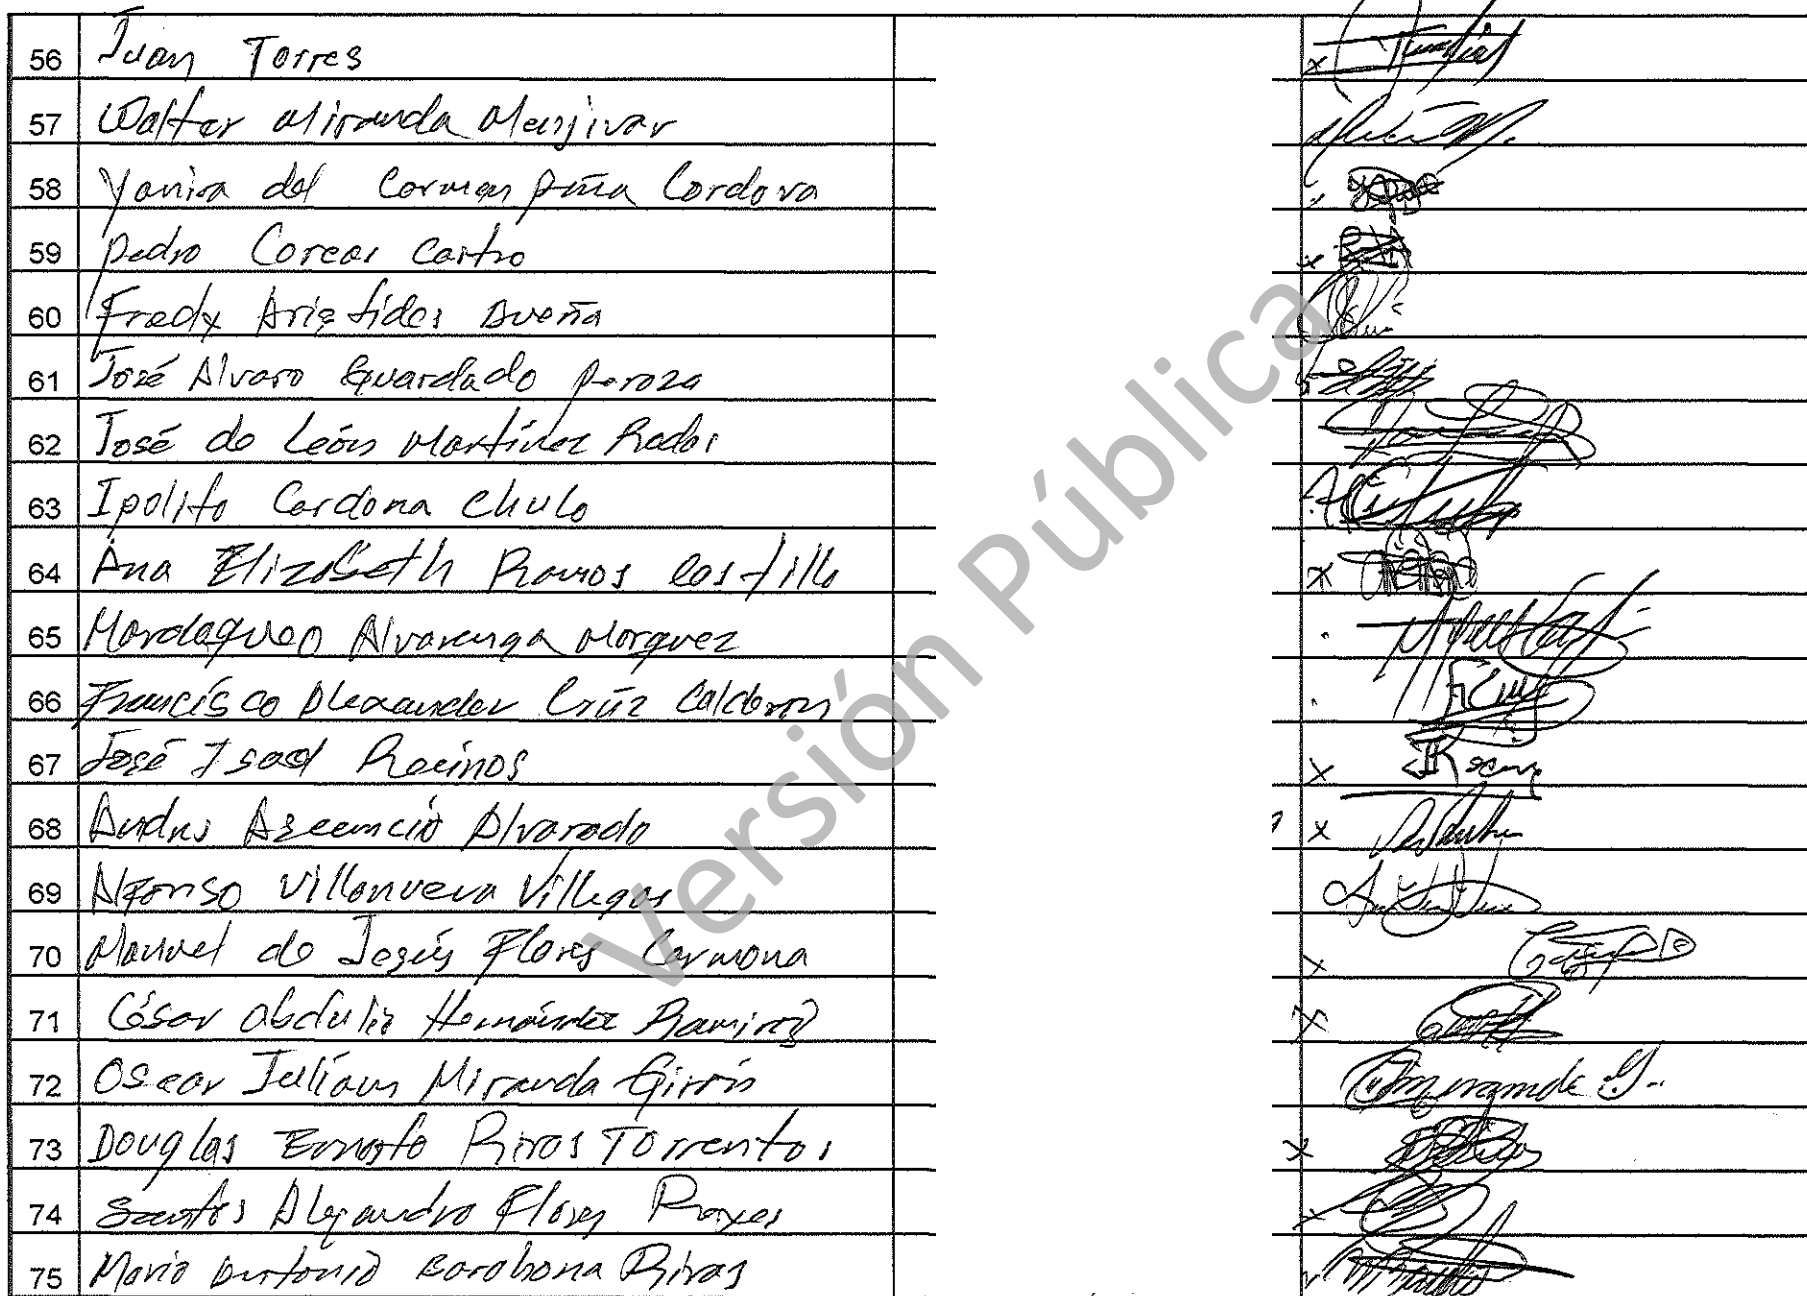 56 Juan Torres
57 Walter Miranda Menjivar
58 Yanira del Carmen Peña Cordova
59 Pedro Coreas Castro
60 Fredy Aristides
61 José Alvaro Guardado Peroza
62 José de León Martínez
63 Ipolito Cardona Chulo
64 Ana Elizabeth Ramos Castillo
65 Mardaqueo Alvarenga Marquez
66 Francisco Alexander Crúz Calderon
67 José Isael Recinos
68 Andres Alvarado
69 Alfonso Villanueva Villegas
70 Manuel de Jesús Flores Carmona
71 César Abdulio Hernández Ramirez
72 Oscar Julían Miranda Girón
73 Douglas Ernesto Rivas Torrentos
74 Santos Alejandro Flores Reyes
75 Mario Antonio Barahona Rivas
Versión Pública